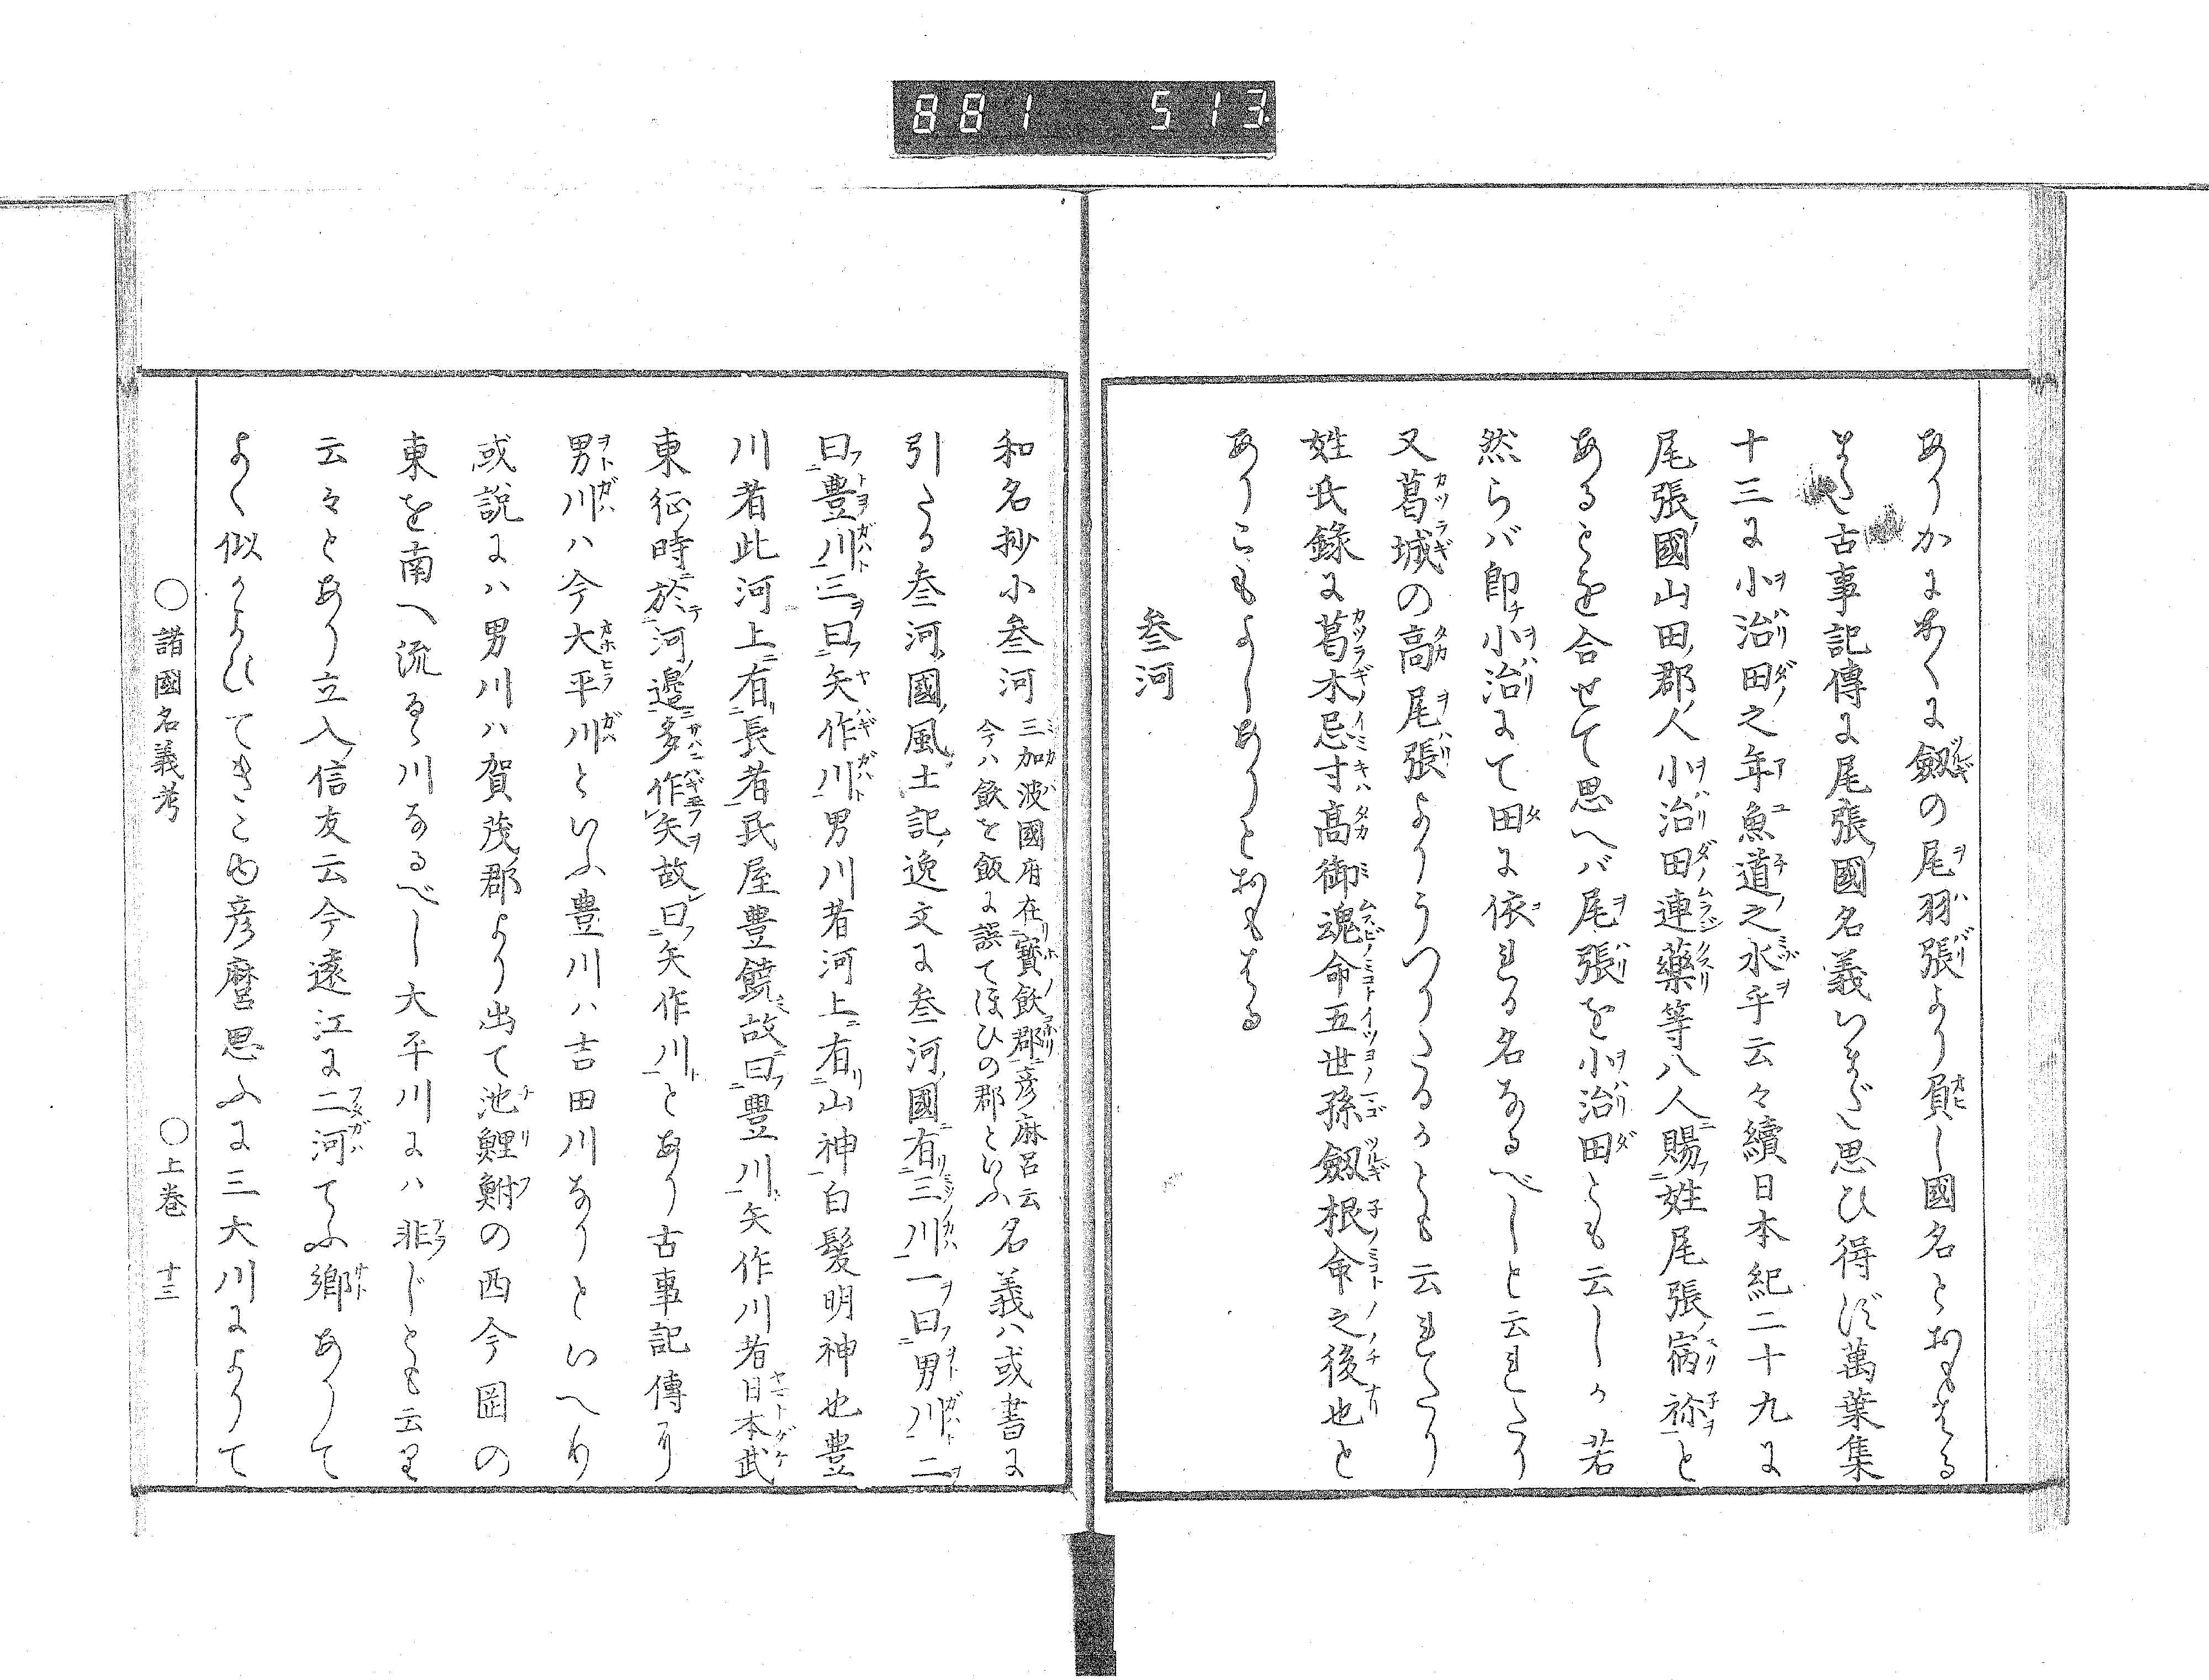 881 513
ありかにあくに劔の尾羽張より負し國名とおもはる
また古事記傳に尾張ノ國名義いまだ思ひ得ず萬葉集
十三に小治田之年魚道之水乎云々續日本紀二十九に
尾張ノ國山田ノ郡ノ人小治田連藥等八人賜姓尾張ノ宿祢と
あるとを合せて思へバ尾張を小治田とも云しか若
然らバ卽チ小治にて田に依れる名なるべしと云れたり
又葛城の高尾張よりうつりたるかとも云れたり
姓氏錄に葛木忌寸高御魂命五世孫劔根命之後也と
ありこもよしありとおもはる
叄河
和名抄小叄河三加波國府在寳飫郡彦麻呂云
今ハ飫を飯に誤てほひの郡といふ名義ハ或書に
引たる叄河ノ國ノ風土記ノ逸文に叄河ノ國有三川一曰男川二
曰豊川三曰矢作川男川者河上有山神白髮明神也豊
川者此河上有長者民屋豊饒故曰豊川矢作川者日本武
東征時於河ノ邊多作矢故曰矢作川とあり古事記傳に
男川ハ今大平川といふ豊川ハ吉田川なりといへり
或說にハ男川ハ賀茂郡より出て池鯉鮒の西今岡の
東を南へ流るゝ川なるべし大平川にハ非じとも云り
云々とあり立入ノ信友云今遠江に二河てふ鄕ありて
よく似かよひてきこゆ彦麿思ふに三大川によりて
○諸國名義考 ○上卷 十三